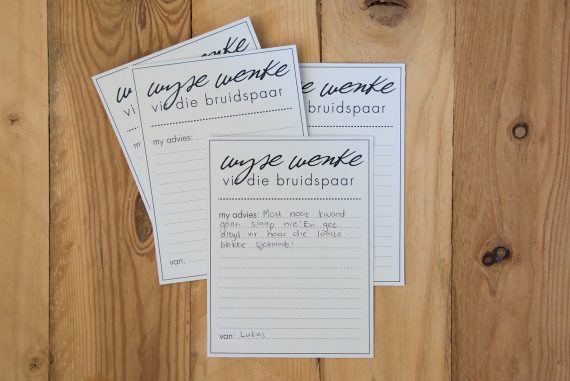 wyse wenke
vir die bruidspaar
my advies:
van:
wenke
bruidspaar
wyse wenke
vir die bruidspaar
my advies: Moet nooit kwaad
gaan slaap nie! En gee
altyd vir haar die laaste
blokkie sjokolade!
van: Lukas